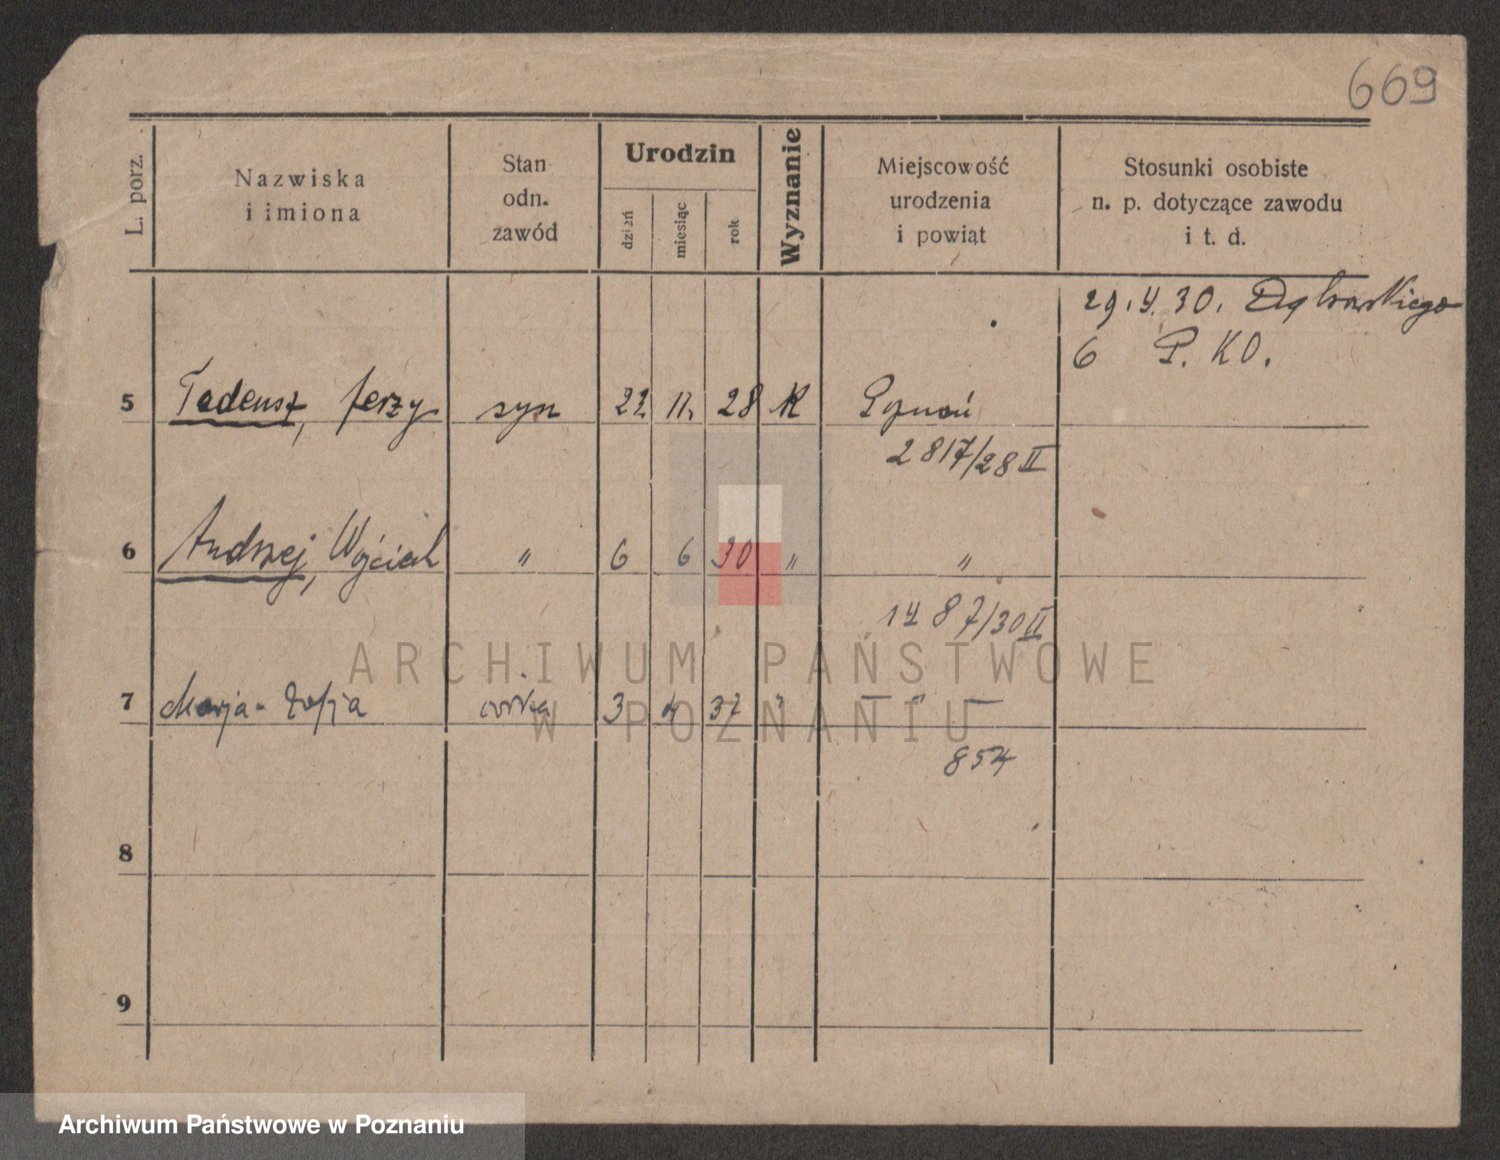 669
L. porz.
Nazwiska
i imiona
Stan
odn.
zawód
Urodzin
dzień
miesiąc
rok
Wyznanie
Miejscowość
urodzenia
i powiąt
Stosunki osobiste
n. p. dotyczące zawodu
i t. d.
29.4.30. Dąbrowskiego
6 P.KO.
5 Tadeusz, Jerzy syn 22 11. 28 K Poznań
2817/28 II
6 Andrzej, Wojciech " 6 6 30 " "
1487/30 II
7 Marja-Zofja córka 3 4 37 " — " —
854
8
9
ARCHIWUM PAŃSTWOWE
W POZNANIU
Archiwum Państwowe w Poznaniu